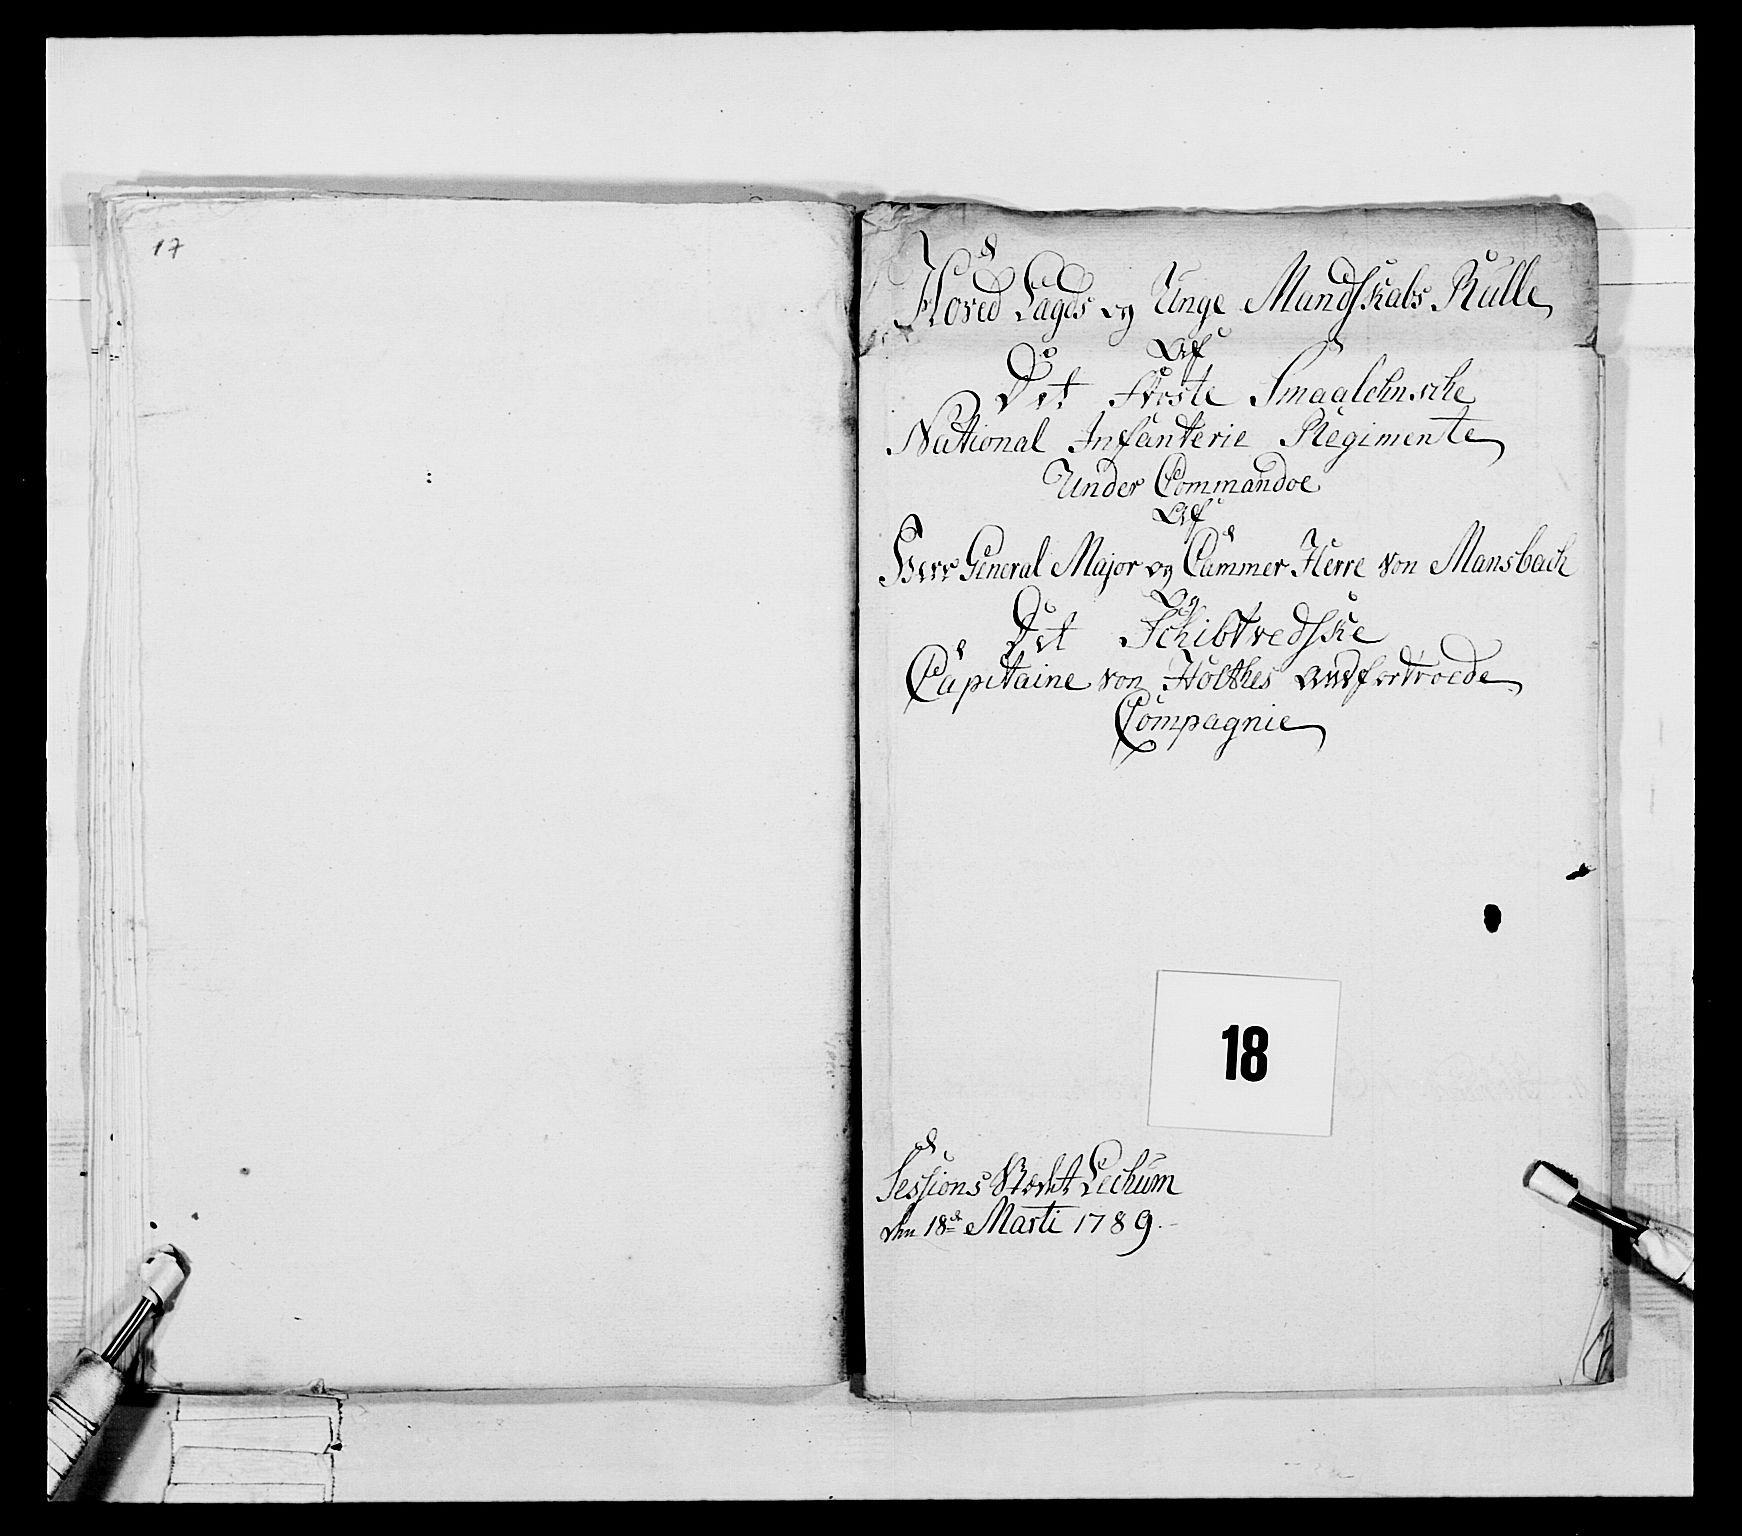 17
Hoved Lægds og Unge Mandskabs Rulle
Af
Det Første Smaalehnsche
National Infanterie Regimente
Under Commandoe
Af
Herr General Major og Cammer Herre von Mansbach
Og
Det Schibtvedske
Capitaine von Holthes anfortroede
Compagnie
18
Sessions Stedet Lechum
den 18de Marti 1789.